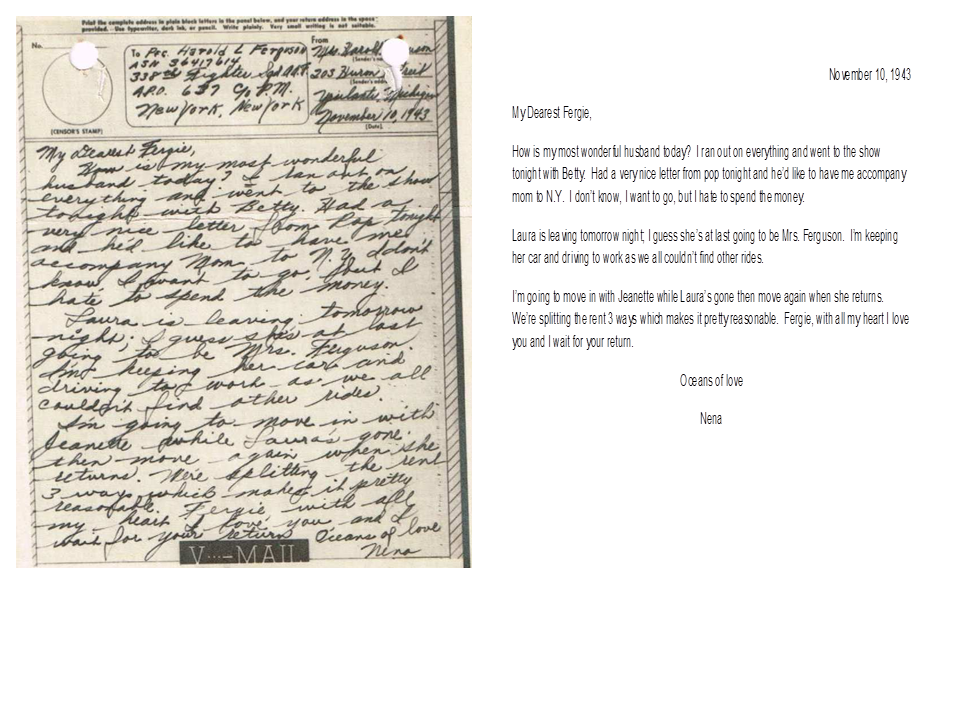 Print the complete address in plain block letters in the panel below, and your return address in the space
provided. Use typewriter, dark ink, or pencil. Write plainly. Very small writing is not suitable.
No.
(CENSOR'S STAMP)
To Pfc. Harold L Ferguson
ASN 36417614
338th Fighter Sqd A.A.F.
A.P.O. 637 C/o P.M.
New York, New York
From
Mrs. Harold
203 Huron
Ypsilanti, Michigan
November 10, 1943
(Date)
My Dearest Fergie,
How is my most wonderful
husband today? I ran out on
everything and went to the show
tonight with Betty. Had a
very nice letter from Pop tonight
and he'd like to have me
accompany Mom to N.Y. I don't
know, I want to go, but I
hate to spend the money.
Laura is leaving tomorrow
night; I guess she's at last
going to be Mrs. Ferguson.
I'm keeping her car and
driving to work as we all
couldn't find other rides.
I'm going to move in with
Jeanette while Laura's gone,
then move again when she
returns. We're splitting the rent
3 ways which makes it pretty
reasonable. Fergie with all
my heart I love you and I
wait for your return Oceans of love
Nena
V···–MAIL
November 10, 1943
My Dearest Fergie,
How is my most wonderful husband today? I ran out on everything and went to the show
tonight with Betty. Had a very nice letter from pop tonight and he'd like to have me accompany
mom to N.Y. I don't know, I want to go, but I hate to spend the money.
Laura is leaving tomorrow night; I guess she's at last going to be Mrs. Ferguson. I'm keeping
her car and driving to work as we all couldn't find other rides.
I'm going to move in with Jeanette while Laura's gone then move again when she returns.
We're splitting the rent 3 ways which makes it pretty reasonable. Fergie, with all my heart I love
you and I wait for your return.
Oceans of love
Nena